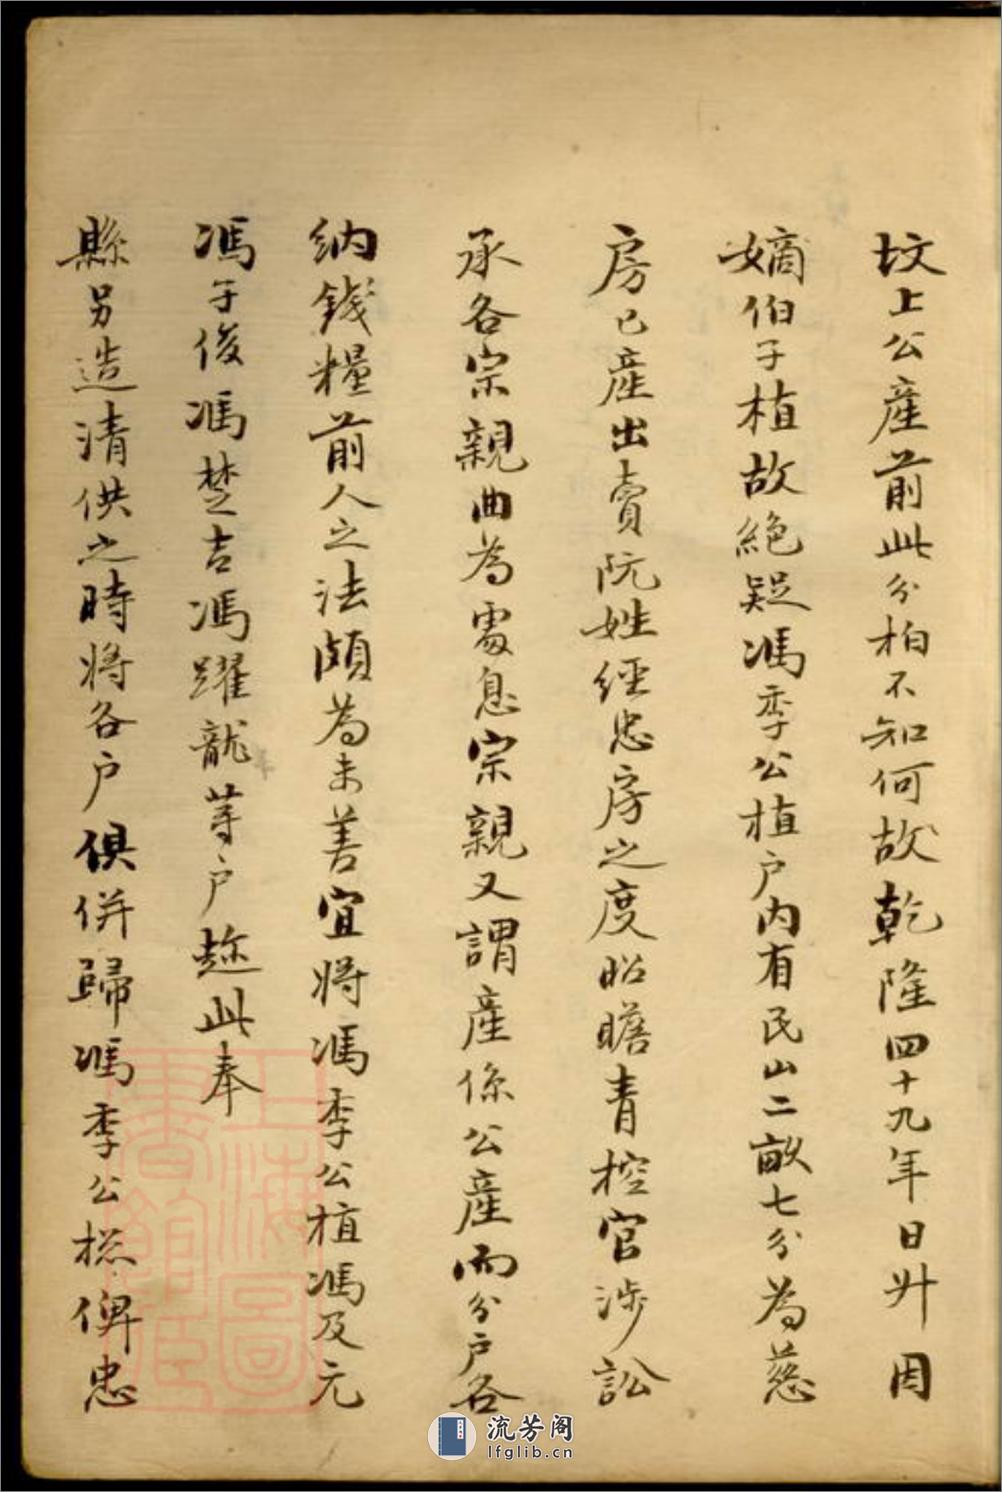 坟上公產前此分柏不知何故乾隆四十九年日升因
嫡伯子植故絕疑馮季公植户内有民山二畝七分為慈
房已產出賣阮姓經忠房之度昭瞻青控官涉訟
承各宗親曲為處息宗親又謂產係公產而分户各
納錢糧前人之法頗為未善宜將馮季公植馮及元
馮于俊馮楚吉馮躍龍等户趂此奉
縣另造清供之時將各户俱併歸馮季公樁俾忠
上海圖書館藏
流芳阁
lfglib.cn